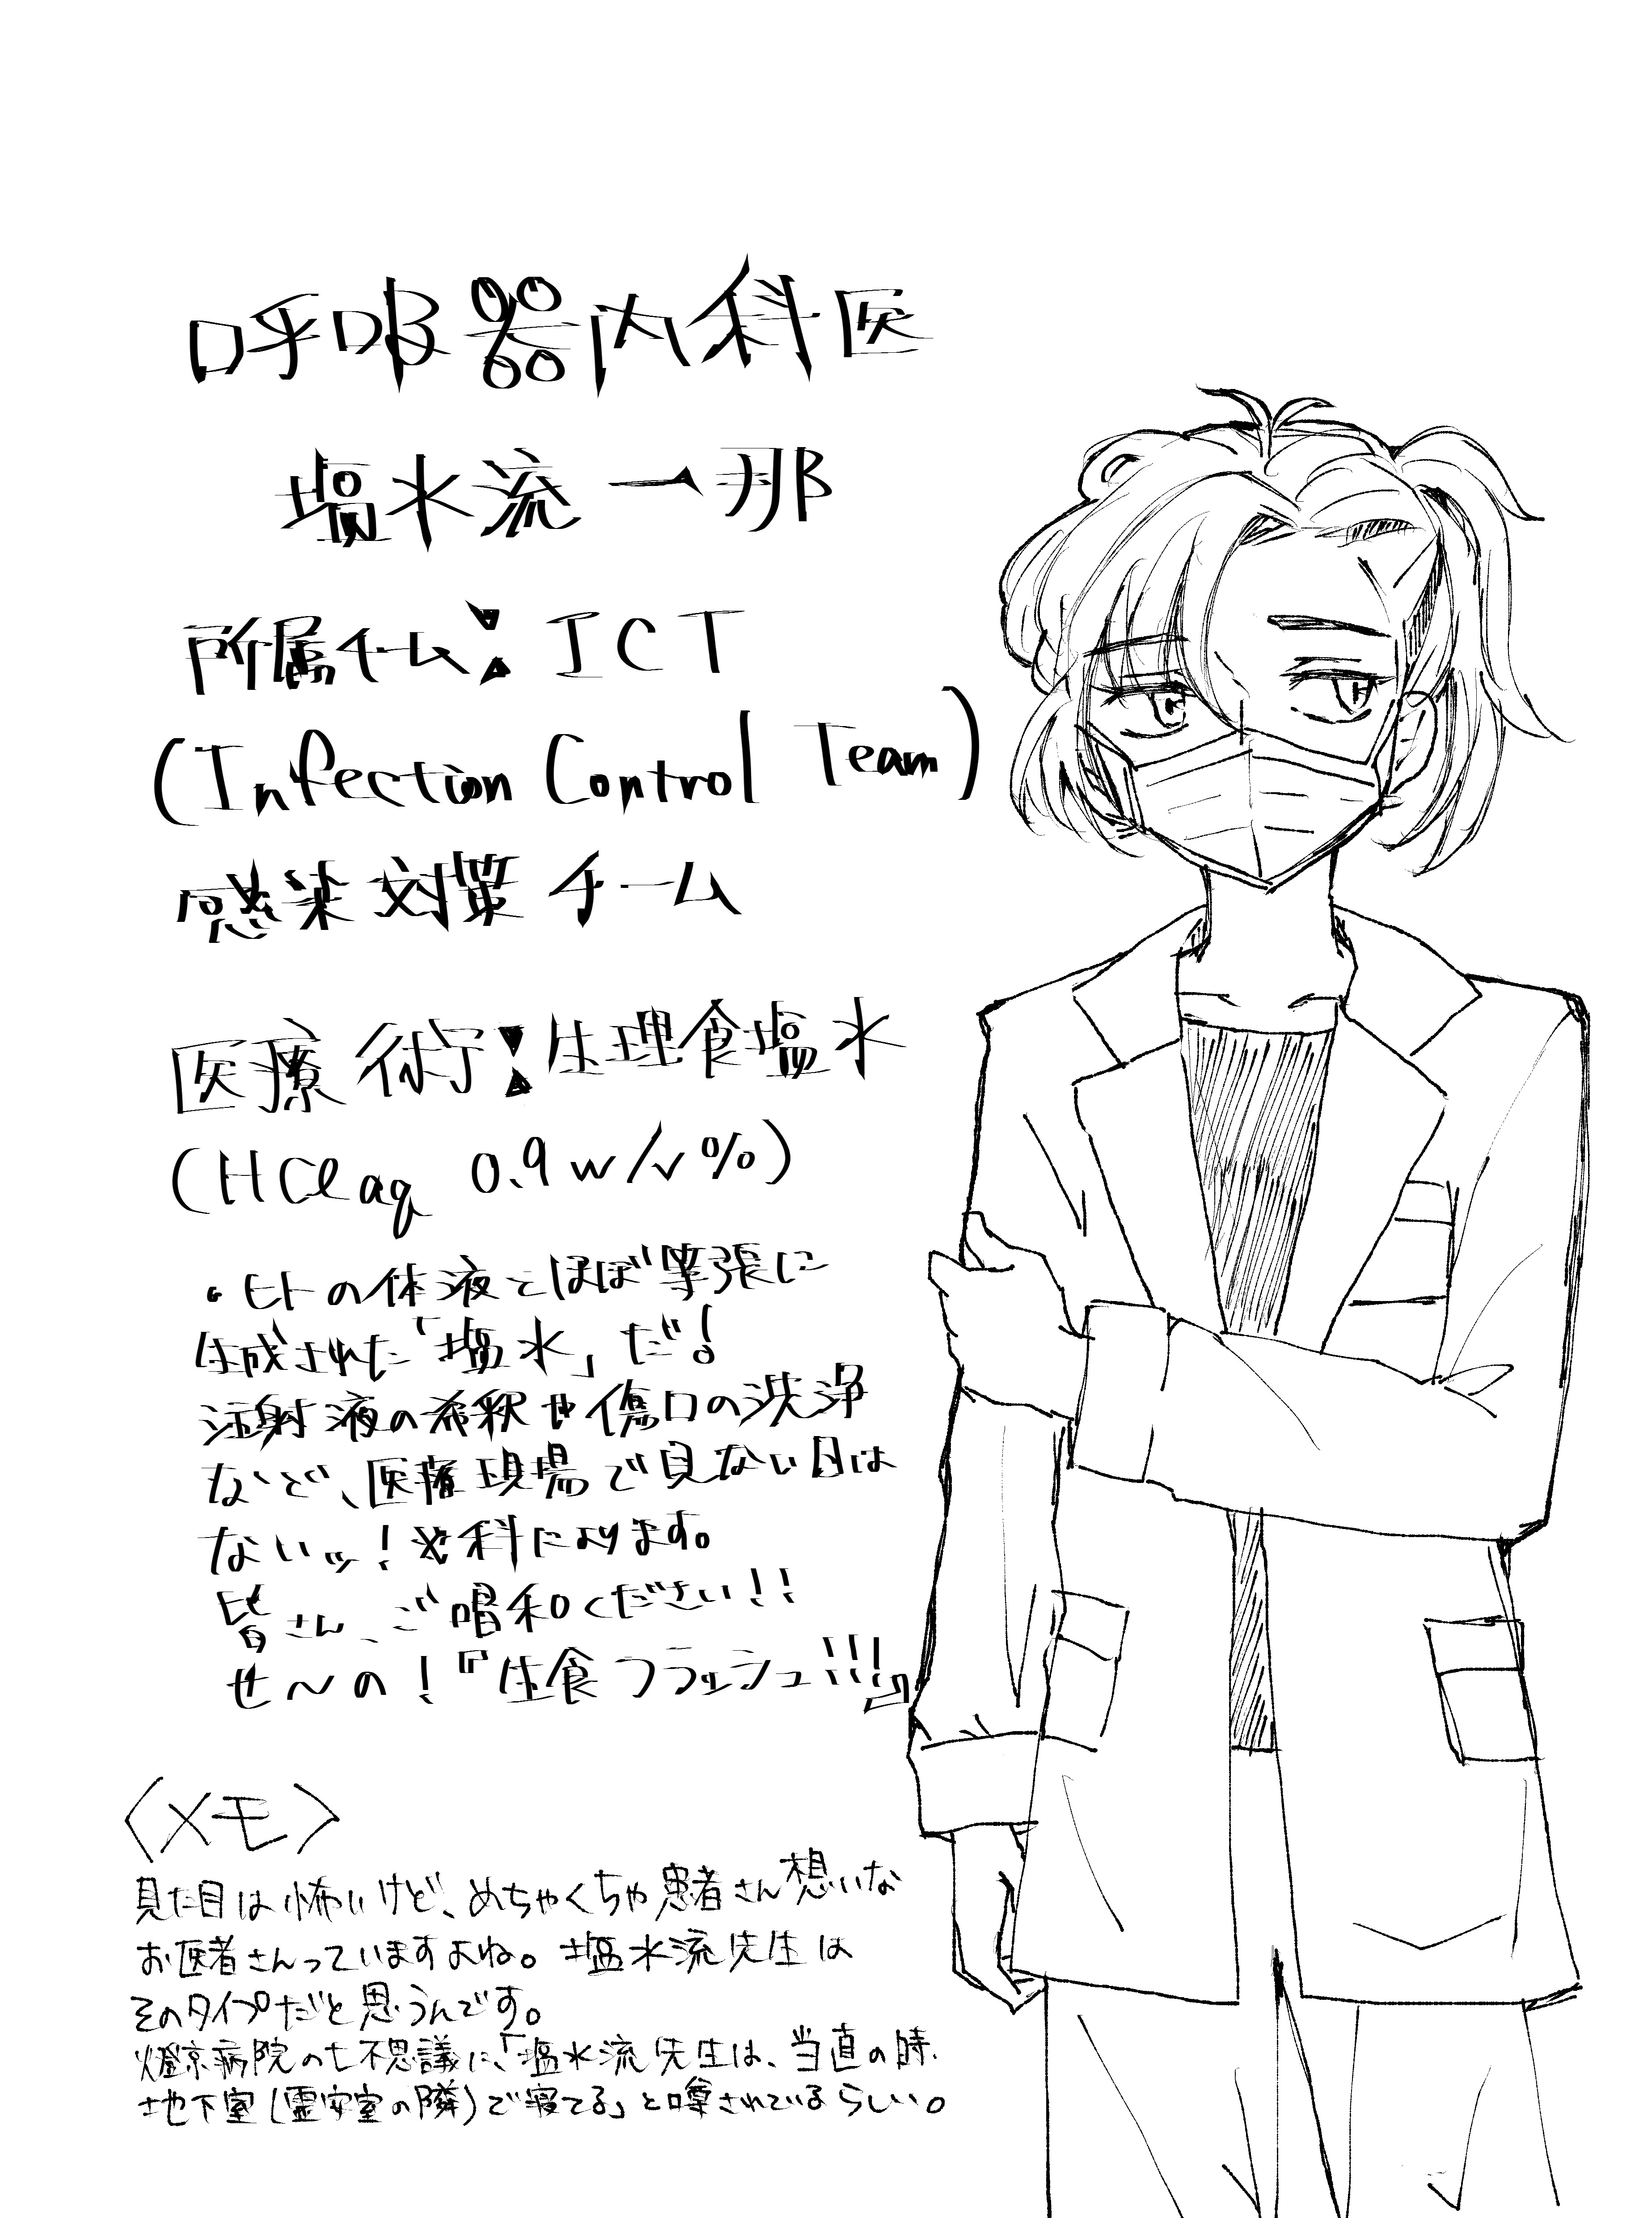 呼吸器内科医
塩水流一那
所属チーム:ICT
(Infection Control Team)
感染対策チーム
医療術:生理食塩水
(HClaq 0.9w/v%)
・ヒトの体液とほぼ等張に
生成された「塩水」だ!
注射液の希釈や傷口の洗浄
など、医療現場で見ない日は
ないッ!※科によります。
皆さん、ご唱和ください!!
せ〜の!『生食フラッシュ!!!』
〈メモ〉
見た目は怖いけど、めちゃくちゃ患者さん想いな
お医者さんっていますよね。塩水流先生は
そのタイプだと思うんです。
燈京病院の七不思議に、「塩水流先生は、当直の時、
地下室(霊安室の隣)で寝てる」と噂されているらしい。